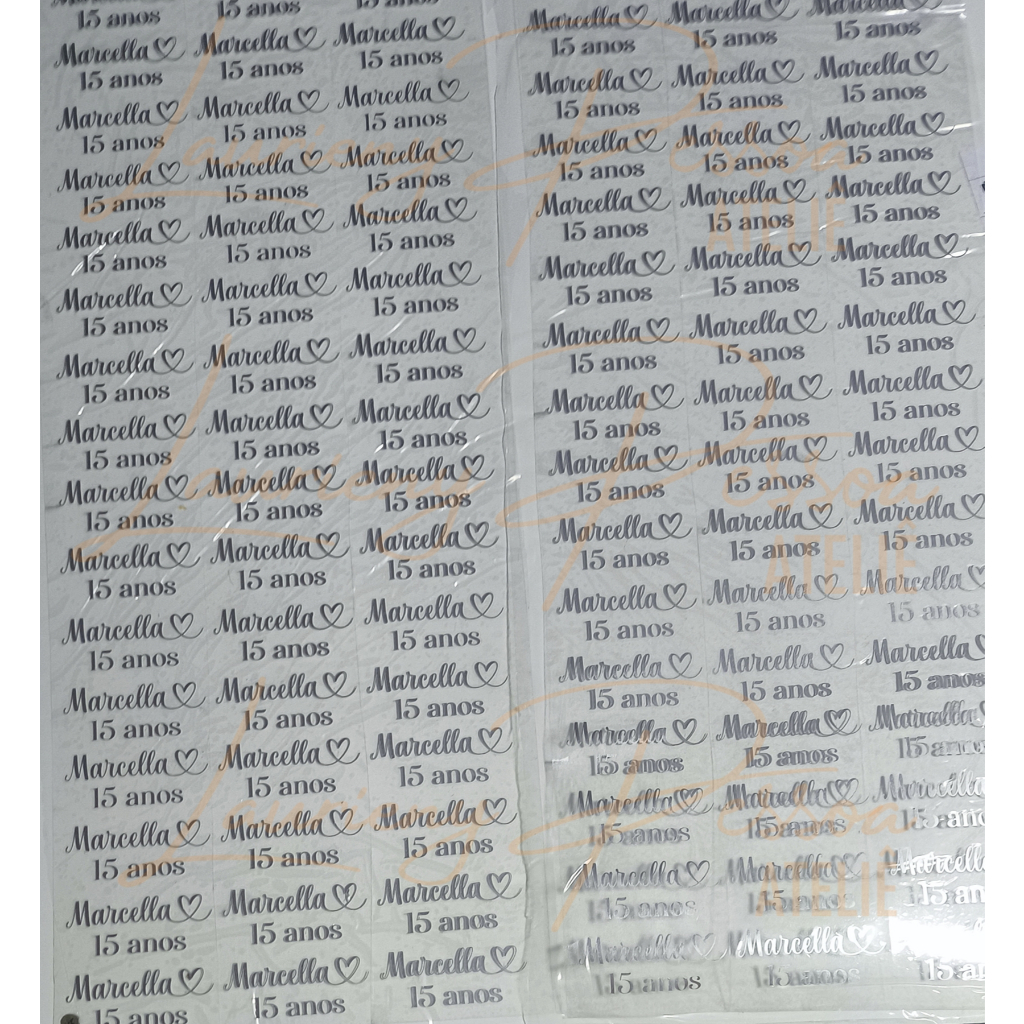 15 anos 15 anos 15 anos
Marcella♡ Marcella♡ Marcella♡
15 anos 15 anos 15 anos
Marcella♡ Marcella♡ Marcella♡
15 anos 15 anos 15 anos
Marcella♡ Marcella♡ Marcella♡
15 anos 15 anos 15 anos
Marcella♡ Marcella♡ Marcella♡
15 anos 15 anos 15 anos
Marcella♡ Marcella♡ Marcella♡
15 anos 15 anos 15 anos
Marcella♡ Marcella♡ Marcella♡
15 anos 15 anos 15 anos
Marcella♡ Marcella♡ Marcella♡
15 anos 15 anos 15 anos
Marcella♡ Marcella♡ Marcella♡
15 anos 15 anos 15 anos
Marcella♡ Marcella♡ Marcella♡
15 anos 15 anos 15 anos
Marcella♡ Marcella♡ Marcella♡
15 anos 15 anos 15 anos
Marcella♡ Marcella♡ Marcella♡
15 anos 15 anos 15 anos
Marcella♡ Marcella♡ Marcella♡
15 anos 15 anos 15 anos
Marcella♡ Marcella♡ Marcella♡
15 anos 15 anos 15 anos
Marcella♡ Marcella♡ Marcella♡
15 anos 15 anos 15 anos
Marcella♡ Marcella♡ Marcella♡
15 anos 15 anos 15 anos
Marcella♡ Marcella♡ Marcella♡
15 anos 15 anos 15 anos
Marcella♡ Marcella♡ Marcella♡
15 anos 15 anos 15 anos
Marcella♡ Marcella♡ Marcella♡
15 anos 15 anos 15 anos
Marcella♡ Marcella♡ Marcella♡
15 anos 15 anos 15 anos
ATELIÊ
Marcella♡ Marcella♡ Marcella♡
15 anos 15 anos 15 anos
Marcella♡ Marcella♡ Marcella♡
15 anos 15 anos 15 anos
Marcella♡ Marcella♡ Marcella♡
15 anos 15 anos 15 anos
Marcella♡ Marcella♡ Marcella♡
15 anos 15 anos 15 anos
Marcella♡ Marcella♡ Marcella♡
15 anos 15 anos 15 anos
ATELIÊ
Marcella♡ Marcella♡ Marcella♡
15 anos 15 anos 15 anos
Marcella♡ Marcella♡ Marcella♡
15 anos 15 anos 15 anos
Marcella♡ Marcella♡ Marcella
15 anos 15 anos 15 anos
Marcella♡ Marcella♡ Marcella
15 anos 15 anos 15 anos
Marcella♡ Marcella♡ Marcella
15 anos 15 anos 15 an
ATELIÊ
Marcella♡ Marcella♡
15 anos 15 anos 15 an